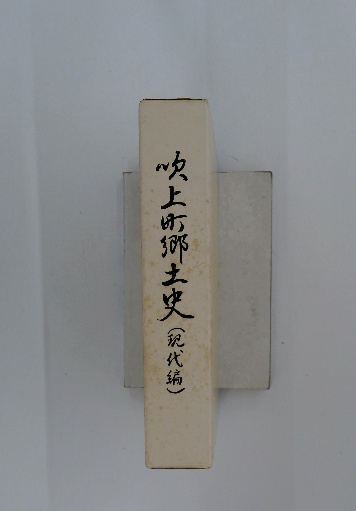 吹上町郷土史（現代編）